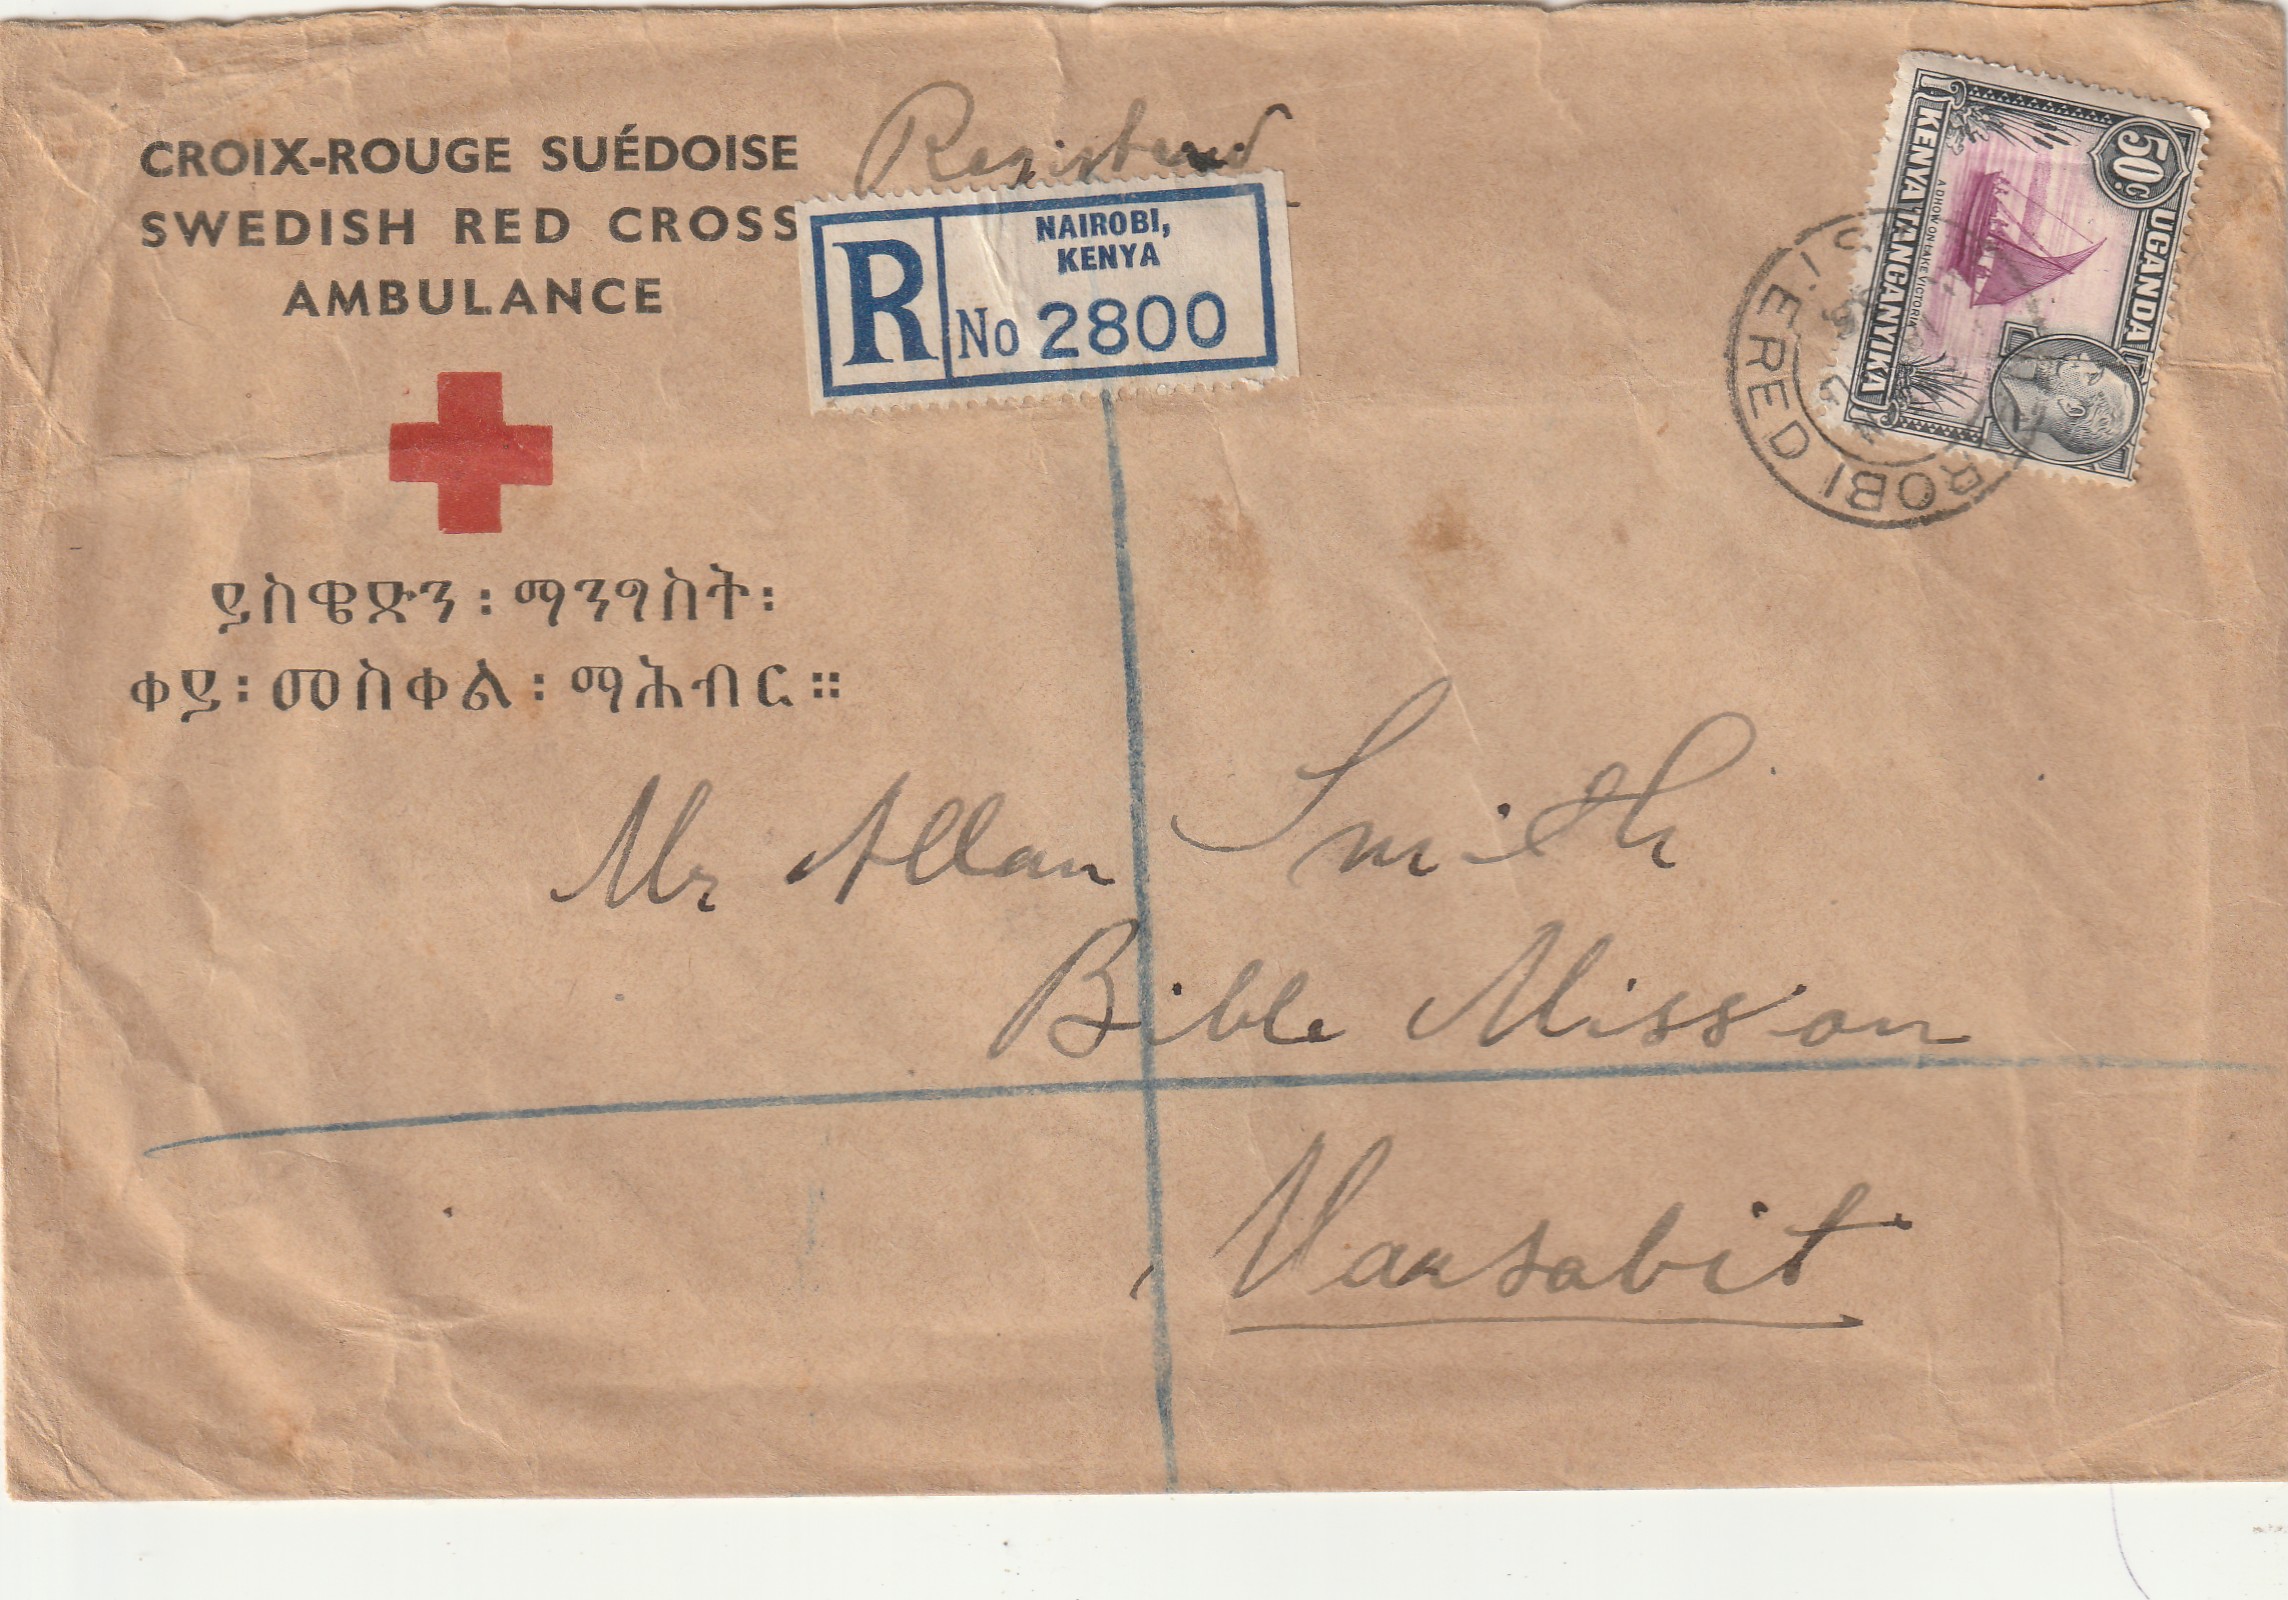 CROIX-ROUGE SUÉDOISE
SWEDISH RED CROSS
AMBULANCE
Registered
R
NAIROBI,
KENYA
No 2800
KENYA TANGANYIKA
A DHOW ON LAKE VICTORIA
50 c
UGANDA
ROBI
ERED
ይስዌድን፡ማንግስት፡
ቀይ፡መስቀል፡ማሕብር።
Mr Allan Smith
Bible Mission
Marsabit